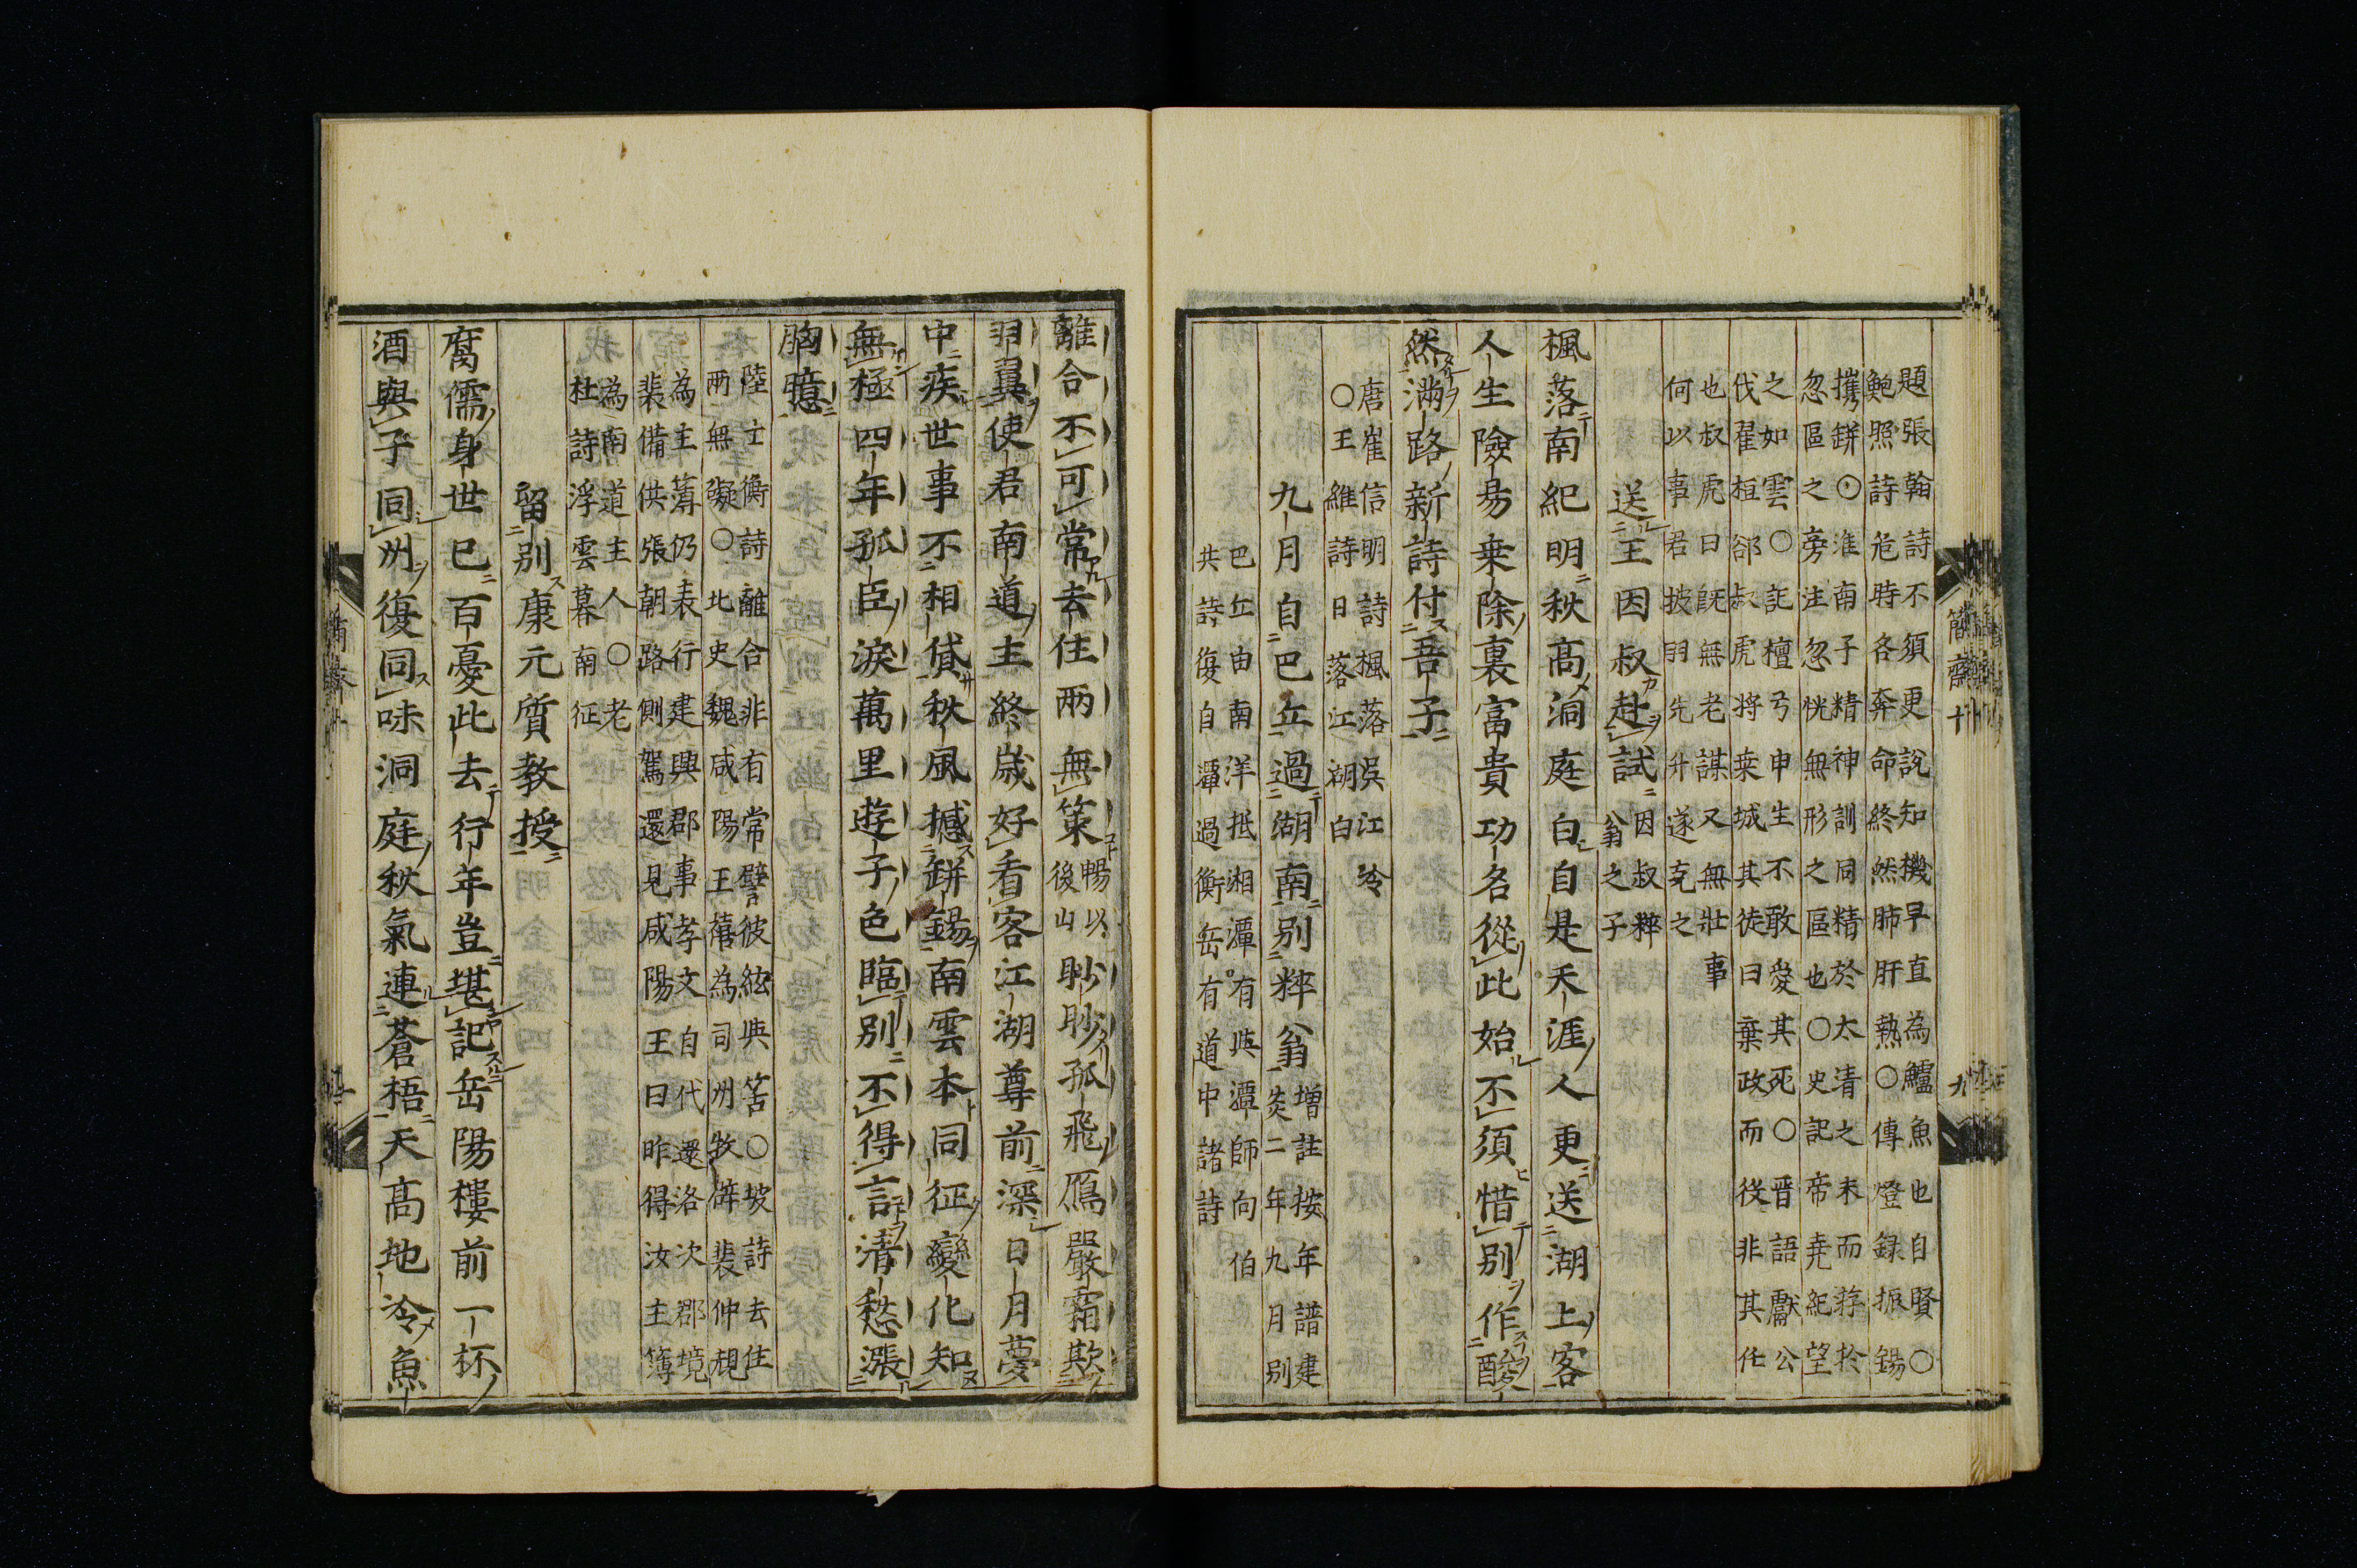 題張翰詩不須更說知機早直為鱸魚也自賢○
鮑照詩危時各奔命終然肺肝熱○傳燈録振錫
攜缾○淮南子精神訓同精於太清之末而荐於
忽區之旁注忽怳無形之區也○史記帝尭紀望
之如雲○記檀弓申生不敢愛其死○晋語獻公
伐翟柤郤叔虎将乗城其徒曰棄政而役非其任
也叔虎曰旣無老謀又無壯事
何以事君披羽先升遂克之
送王因叔赴試
因叔粹
翁之子
楓落南紀明秋髙洞庭白自是天涯人更送湖上客
人生險易乗除裏富貴功名從此始不須惜别作酸
然滿路新詩付吾子
唐崔信明詩楓落吳江冷
○王維詩日落江湖白
九月自巴丘過湖南别粹翁
増註按年譜建
炎二年九月别
巴丘由南洋抵湘潭有與潭師向伯
共詩復自潭過衡岳有道中諸詩
離合不可常去住兩無策
暢以
後山
眇眇孤飛鴈嚴霜欺
羽翼使君南道主終歳好看客江湖尊前深日月夢
中疾世事不相貸秋風撼缾錫南雲本同征變化知
無極四年孤臣淚萬里遊子色臨别不得言清愁漲
胸臆
陸士衡詩離合非有常譬彼絃與筈○坡詩去住
兩無礙○北史魏咸陽王禧為司州牧辟裴仲規
為主簿仍表行建興郡事孝文自代還洛次郡境
裴備供張朝路側駕還見咸陽王曰昨得汝主簿
為南道主人○老
杜詩浮雲暮南征
留别康元質教授
腐儒身世已百憂此去行年豈堪記岳陽樓前一杯
酒與子同州復同味洞庭秋氣連蒼梧天髙地冷魚
簡齋十
九